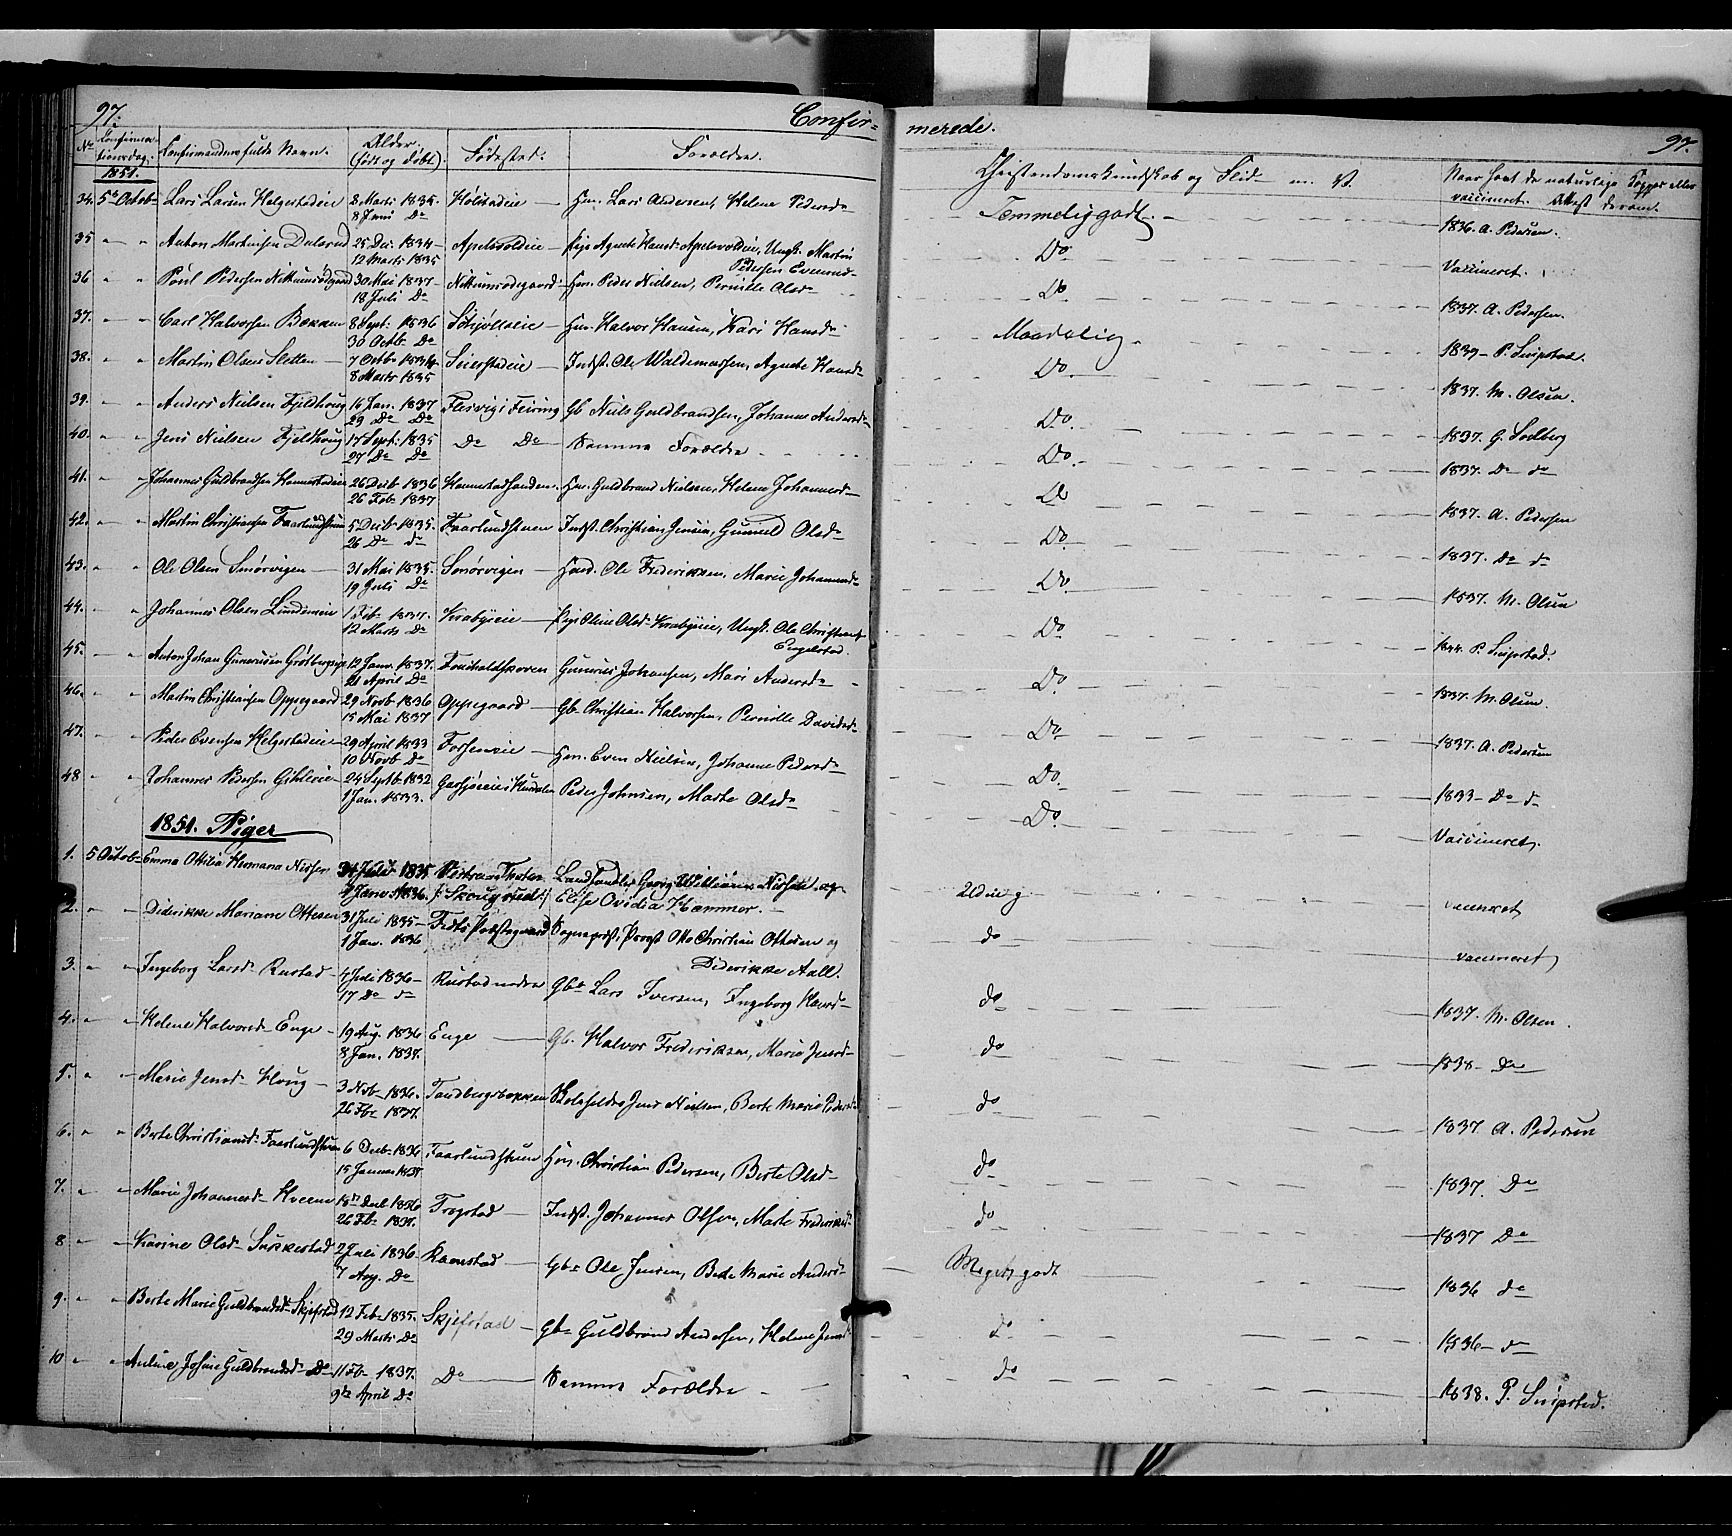 97.
Confir-
merede.
97.
No Confirmationsdag. Konfirmandens fulde Navn. Alder. (født og døbt). Fødested. Forældre. Christendomskundskab og Flid m. V. Naar havt de naturlige Kopper eller vaccineret. Attest derom.
1851.
34. 5te Octob- Lars Larsen Helgestadeie 2 Marts 1835- Holstadeie Hm. Lars Andersen, Helene Pedersd- Temmelig godt. 1836. A. Pedersen.
8 Juni Do
35 " " Anton Martinsen Dalerud 25 Dec. 1834- Apelsvoldeie- Pige Agnete Hansd- Apelsvoldeie, Ungk. Martin Do Vaccineret.
12 Marts 1835 Pedersen Evenrud-
36 " " Poul Pedersen Nettumsødegaard 30 Mai 1837- Nettumsødegaard- Hm. Peder Nielsen, Pernille Olsd- Do 1837. A. Pedersen.
18 Juli Do
37. " " Carl Halvorsen Bakken 8 Sept. 1836 Hm. Halvor Hansen, Kari Hansd- Maadelig. 1839- P. Seipstad.
30 Octb. Do
38. " " Martin Olsen Sletten- 7 Octb- 1834- Seierstadeie- Indst. Ole Waldemarsen, Agnete Hansd- Do. 1837. M. Olsen.
8 Marts 1835
39. " " Anders Nielsen Fjeldhoug 16 Jan. 1837 Flesvig i Feiring Gb Niels Guldbrandsen, Johanne Andersd- Do 1837. G. Sodberg
29 Do Do
40. " " Jens Nielsen Fjeldhoug 17 Sept. 1835 Do Do Samme Forældre Do. 1837. Do do
27 Do Do
41. " " Johannes Guldbrandsen 26 Decb 1836 Hm. Guldbrand Nielsen, Helene Johannesd- Do 1837. A. Pedersen
26 Feb- 1837
42. " " Martin Christiansen Faarlundstuen 5 Decb- 1835. Faarlundstuen Indst. Christian Jensen, Gunnild Olsd- Do. 1837. Do do
26 Do do
43. " " Ole Olsen Smørvigen- 31 Mai 1835. Smørvigen- Ole Frederiksen, Marie Johannesd- Do. 1837. M. Olsen
19 Juli Do
44. " " Johannes Olsen Lundeneie 1 Feb- 1837. Krabyeie- Pige Oline Olsd- Krabyeie, Ungk. Ole Christians Do 1844. P. Seipstad.
12 Marts Do Engelstad.
45. " " Anton Johan Gunerusen 12 Janv. 1837. Gunerus Johansen, Mari Andersd- Do. 1837. M. Olsen.
21 April Do
46. " " Martin Christiansen Oppegaard 29 Novb 1836 Oppegaard- Gb- Christian Halvorsen, Pernille Davidsd- Do 1837. A. Pedersen
15 Mai 1837
47. " " Peder Evensen Helgestadeie 29 April 1833 Forseneie Hm. Even Nielsen, Johanne Pedersd- Do. 1833- Do do
10 Novb Do
48 " " Johannes Pedersen 24 Septb 1832 Peder Johnsen, Marte Olsd- Do. Vaccineret.
1 Jan. 1833.
1851. Piger
1. 5 Octob- Emma Ottilia Hermana Nissen 1835 Vestre Thoten Landhandler Georg Williams Nissen og Udm. g vaccineret
1836. Elise Ovidia Hammer.
2. " " Diderikke Mariane Ottesen 31 Juli 1835- Fedts Præstegaard Sognepræst, Provst Otto Christian Ottesen og do vaccineret
1 Jan. 1836 Diderikke Aall.
3. " " Ingeborg Larsd- Rustad- 4 Juli 1836- Rustad nedre Gbr Lars Iversen, Ingeborg Hansd- do 1837. M. Olsen.
17 Do do
4. " " Helene Halvorsd- Enge- 19 Aug. 1836 Enge- Gb. Halvor Frederiksen, Marie Jensd- do 1838- Do
8 Jan. 1837.
5. " " Marie Jensd- Houg- 3 Nov- 1836. Tandbergsbakken Jens Nielsen, Berte Marie Pedersd- do 1837. A. Pedersen
26 Fb- 1837.
6. " " Berte Christiansd- Faarlundstuen 6 Decb- 1836 Faarlundstuen Hm. Christian Pedersen, Berte Olsd- do 1837. Do
15 Januar 1837
7. " " Marie Johannesd- Hveem 18de Decb 1836 Trogstad- Indst. Johannes Olsen, Marte Frederiksd- do 1837 Do
26 Fb- 1837.
8 " " Karine Olsd- Sukkestad 2 Juli 1836- Ramstad- Gbr Ole Jensen, Berte Marie Andersd- Meget godt 1836 do
7 Aug. Do
9. " " Berte Marie Guldbrandsd- Skjefstad 12 Feb- 1835. Skjefstad- Gbr Guldbrand Andersen, Helene Jensd- do 1836- do
29 Marts Do
10 " " Auline Josine Guldbrandsd- Do- 11 Fb- 1837. Do- Samme Forældre- do 1838. P. Seipstad.
9de April Do